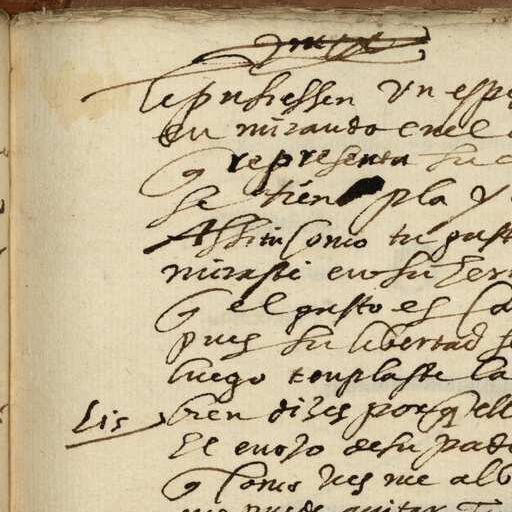 le pusiessen Un espe
en mirando enel
q representa su
se tien pla y
Assi tu como tu gust
miraste en su
q el gusto es la
pues su libertad s
luego templaste la
Lis bien dizes porq ell
El enojo de su pad
q como ves me alb
me puede quitar